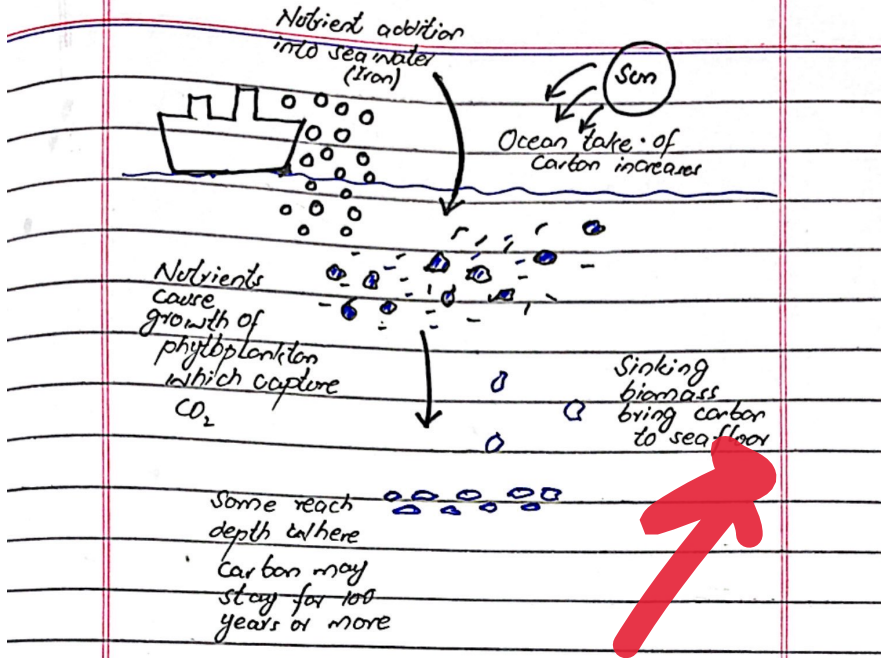 Nutrient addition
into sea water
(Iron)
Sun
Ocean take of
carbon increases
Nutrients
cause
growth of
phytoplankton
which capture
CO₂
Sinking
biomass
bring carbon
to sea floor
Some reach
depth where
carbon may
stay for 100
years or more